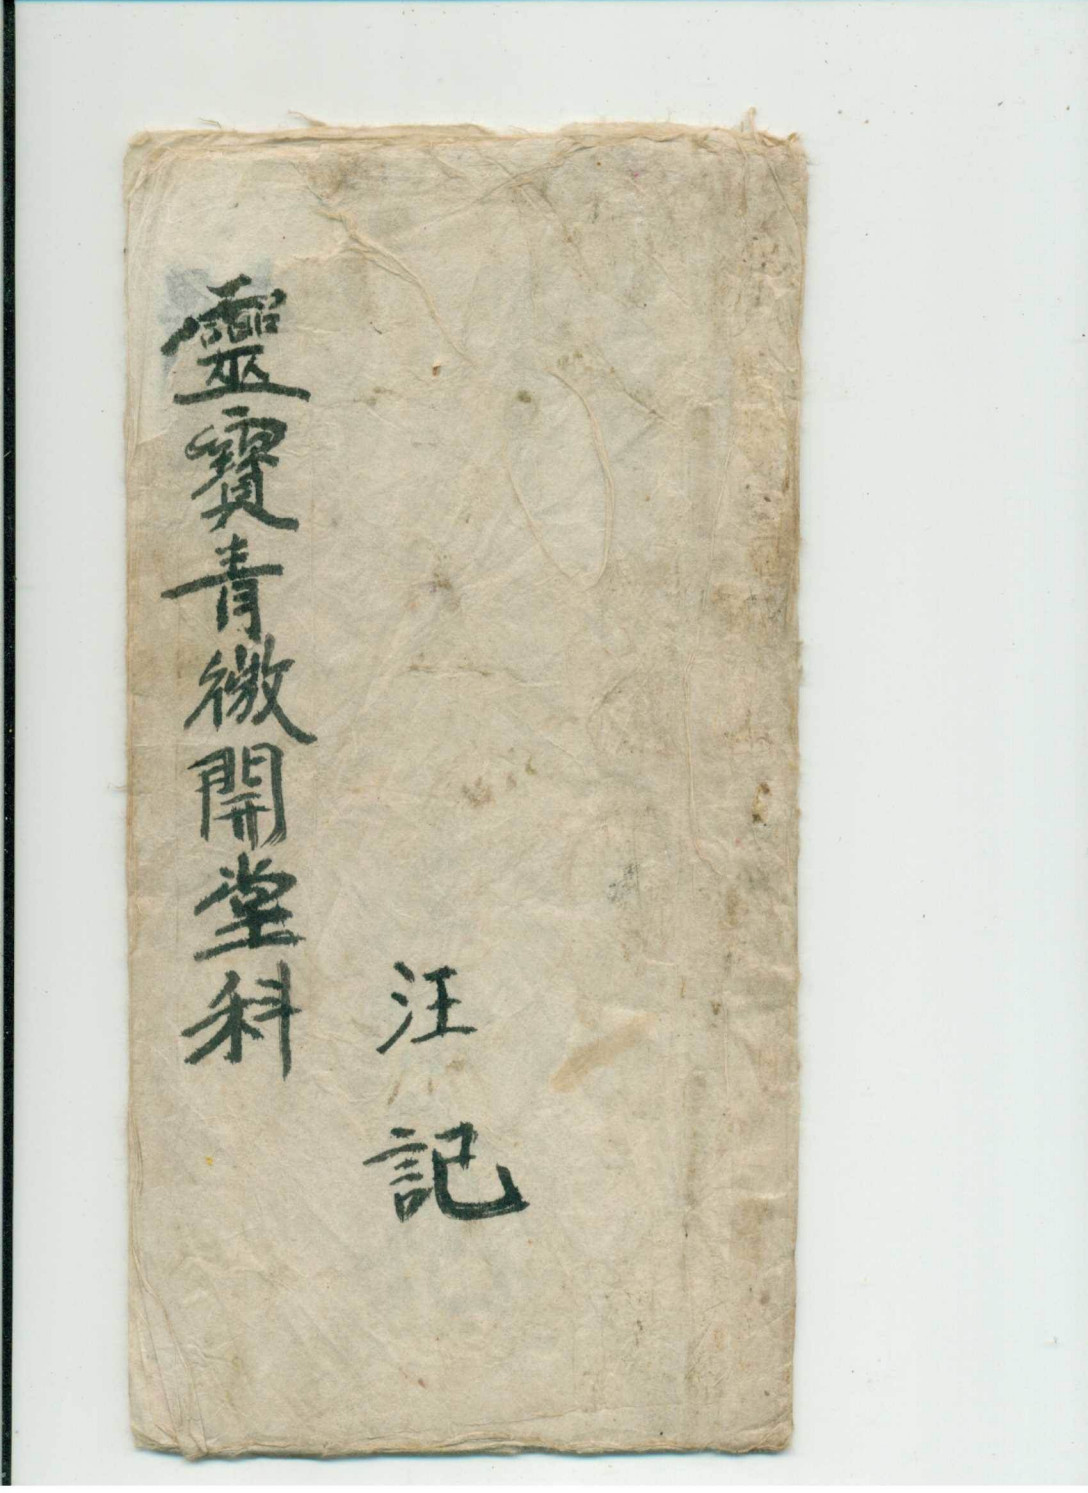 靈寶青微開堂科
汪記